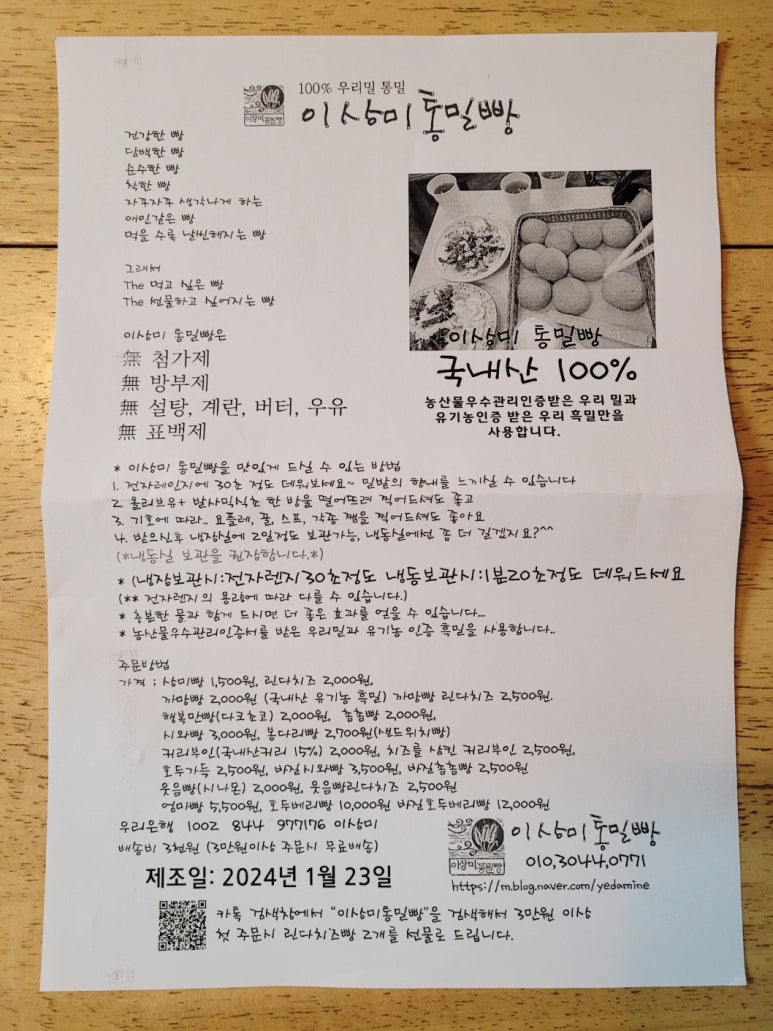 100% 우리밀 통밀
이상미통밀빵
이상미통밀빵
건강한 빵
담백한 빵
순수한 빵
착한 빵
자꾸자꾸 생각나게 하는
애인같은 빵
먹을 수록 날씬해지는 빵
그래서
The 먹고 싶은 빵
The 선물하고 싶어지는 빵
이상미 통밀빵은
無 첨가제
無 방부제
無 설탕, 계란, 버터, 우유
無 표백제
이상미 통밀빵
국내산 100%
농산물우수관리인증받은 우리 밀과
유기농인증 받은 우리 흑밀만을
사용합니다.
* 이상미 통밀빵을 맛있게 드실 수 있는 방법
1. 전자레인지에 30초 정도 데워보세요~ 밀밭의 향내를 느끼실 수 있습니다
2. 올리브유+ 발사믹식초 한 방울 떨어뜨려 찍어드셔도 좋고
3. 기호에 따라.. 요플레, 꿀, 스프, 각종 잼을 찍어드셔도 좋아요
4. 받으신후 냉장실에 2일정도 보관가능, 냉동실에선 좀 더 길겠지요?^^
(*냉동실 보관을 권장합니다.*)
* (냉장보관시:전자렌지30초정도 냉동보관시:1분20초정도 데워드세요
(** 전자렌지의 용량에 따라 다를 수 있습니다.)
* 충분한 물과 함께 드시면 더 좋은 효과를 얻을 수 있습니다...
* 농산물우수관리인증서를 받은 우리밀과 유기농 인증 흑밀을 사용합니다..
주문방법
가격 : 상미빵 1,500원, 린다치즈 2,000원,
까망빵 2,000원 (국내산 유기농 흑밀) 까망빵 린다치즈 2,500원.
행복만빵(다크초코) 2,000원, 촘촘빵 2,000원,
시와빵 3,000원, 봉다리빵 2,700원(샌드위치빵)
커리부인(국내산커리 15%) 2,000원, 치즈를 삼킨 커리부인 2,500원,
호두가득 2,500원, 바질시와빵 3,500원, 바질촘촘빵 2,500원
웃음빵(시나몬) 2,000원, 웃음빵린다치즈 2,500원
엄마빵 5,500원, 호두베리빵 10,000원 바질호두베리빵 12,000원
우리은행 1002 844 977176 이상미
배송비 3천원 (3만원이상 주문시 무료배송)
제조일: 2024년 1월 23일
이상미통밀빵
이상미통밀빵
010.3044.0771
https://m.blog.naver.com/yedamine
카톡 검색창에서 "이상미통밀빵"을 검색해서 3만원 이상
첫 주문시 린다치즈빵 2개를 선물로 드립니다.